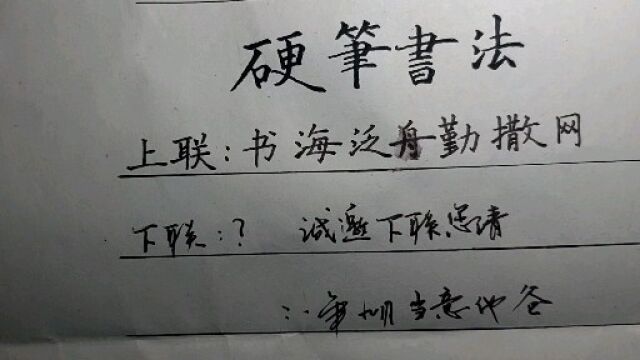 硬筆書法
上联:书海泛舟勤撒网
下联:? 诚邀下联您请